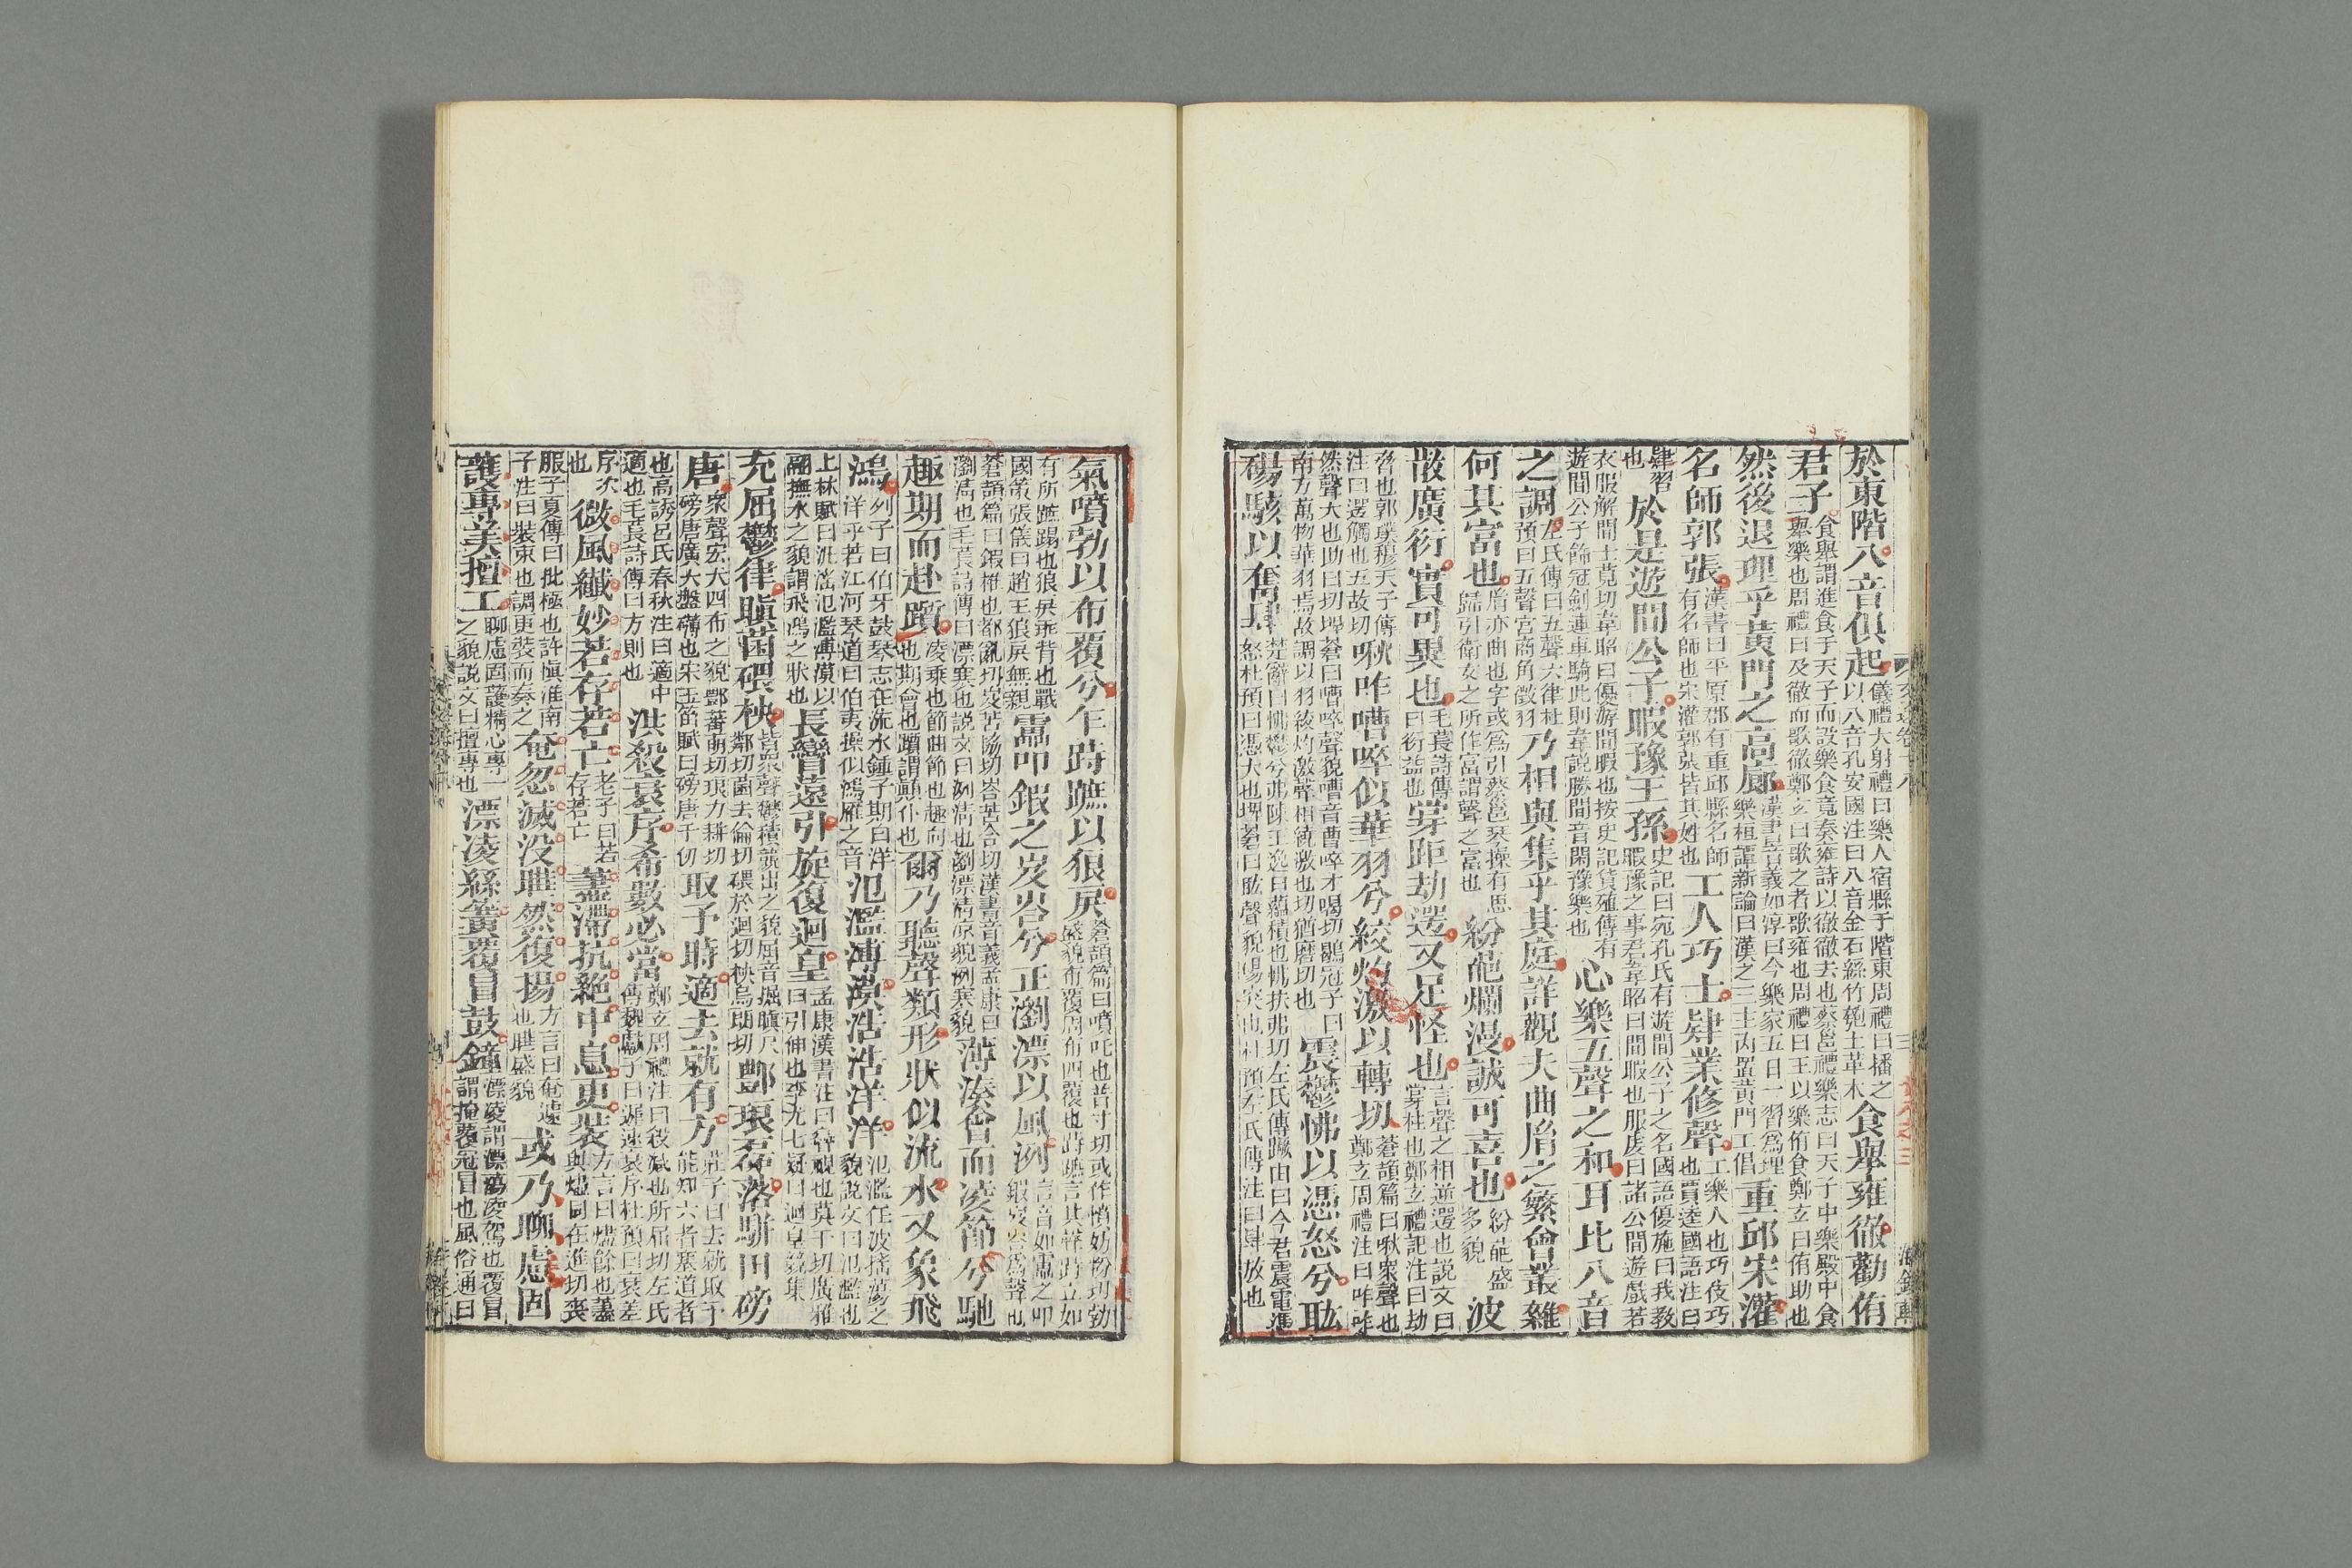 於東階八音俱起儀禮大射禮曰樂人宿縣于階東周禮曰播之以八音孔安國注曰八音金石絲竹匏土革木食舉雍徹勸侑
君子食舉謂進食于天子而設樂食竟奏雍詩以徹徹去也蔡邕禮樂志曰天子中樂殿中食舉樂也周禮曰及徹而歌徹鄭玄曰歌之者歌雍也周禮曰王以樂侑食鄭玄曰侑助也
然後退理乎黃門之高廊漢書音義如淳曰今樂家五日一習爲理樂桓譚新論曰漢之三主內置黃門工倡重邱宋灌
名師郭張漢書曰平原郡有重邱縣名師有名師也宋灌郭張皆其姓也工人巧士肄業修聲工樂人也巧伎巧也賈逵國語注曰
肄習也於是遊閒公子暇豫王孫史記曰宛孔氏有遊閒公子之名國語優施曰我教暇豫之事君韋昭曰閒暇也服虔曰諸公閒遊戲若
衣服解閒士莧切韋昭曰優游閒暇也按史記貨殖傳有遊閒公子飾冠劍連車騎此則韋說勝閒音閑豫樂也心樂五聲之和耳比八音
之調左氏傳曰五聲六律杜預曰五聲宮商角徵羽乃相與集乎其庭詳觀夫曲胤之繁會叢雜
何其富也胤亦曲也字或爲引蔡邕琴操有思歸引衛女之所作富謂聲之富也紛葩爛漫誠可喜也紛葩盛多貌波
散廣衍實可異也毛萇詩傳曰衍益也牚距劫遻又足怪也言聲之相逆遻也說文曰牚柱也鄭玄禮記注曰劫
脅也郭璞穆天子傳注曰遻觸也五故切啾咋嘈啐似華羽兮絞灼激以轉切蒼頡篇曰啾衆聲也鄭玄周禮注曰咋咋
然聲大也助曰切埤蒼曰嘈啐聲貌嘈音曹啐才喝切鶡冠子曰南方萬物華羽焉故調以羽絞灼激聲相繞激也切猶磨切也震鬱怫以憑怒兮耾
碭駭以奮肆楚辭曰怫鬱兮弗陳王逸曰蘊積也怫扶弗切左氏傳蹶由曰今君震電馮怒杜預曰憑大也埤蒼曰耾聲貌碭突也杜預左氏傳注曰肆放也
氣噴勃以布覆兮乍跱蹠以狼戾蒼頡篇曰噴吒也普寸切或作憤妨粉切勃盛貌布覆周布四覆也跱蹠言其乍跱立如
有所蹠蹋也狼戾乖背也戰國策張儀曰趙王狼戾無親靁叩鍜之岌峇兮正瀏溧以風冽言音如靁之叩鍜岌峇爲聲也
蒼頡篇曰鍜椎也都亂切岌苦協切峇苦合切漢書音義孟康曰瀏清也毛萇詩傳曰溧寒也說文曰冽清也瀏溧清涼貌冽寒貌薄湊會而凌節兮馳
趣期而赴躓凌乘也節曲節也趣向也期會也躓謂顛仆也爾乃聽聲類形狀似流水又象飛
鴻列子曰伯牙鼓琴志在流水鍾子期曰洋洋乎若江河琴道曰伯夷操似鴻雁之音氾濫溥漠浩浩洋洋氾濫任波搖蕩之貌說文曰氾濫也
上林賦曰沇溶氾濫溥漠以翩撫水之貌謂飛鴻之狀也長矕遠引旋復迴皇孟康漢書注曰矕視也莫干切廣雅曰引伸也李尤七疑曰迴皇競集
充屈鬱律瞋菌碨柍皆衆聲鬱積競出之貌屈音掘瞋尺鄰切菌去倫切碨於迴切柍烏朗切酆琅磊落駢田磅
唐衆聲宏大四布之貌酆蒲萌切琅力耕切磅唐廣大盤礴也宋玉笛賦曰磅唐千仞取予時適去就有方莊子曰去就取予能知六者塞道者
也高誘呂氏春秋注曰適中適也毛萇詩傳曰方則也洪殺衰序希數必當鄭玄周禮注曰殺減也所屆切左氏傳魏獻子曰遲速衰序杜預曰衰差
序次也微風纖妙若存若亡老子曰若存若亡藎滯抗絕中息更裝方言曰燼餘也藎與燼同在進切奘
服子夏傳曰批極也許慎淮南子注曰裝束也謂更裝而奏之奄忽滅沒曄然復揚方言曰奄遽也曄盛貌或乃聊慮固
護專美擅工聊慮固護精心專一之貌說文曰擅專也漂凌絲簧覆冒鼓鐘漂凌謂漂蕩凌駕也覆冒謂掩覆冠冒也風俗通曰